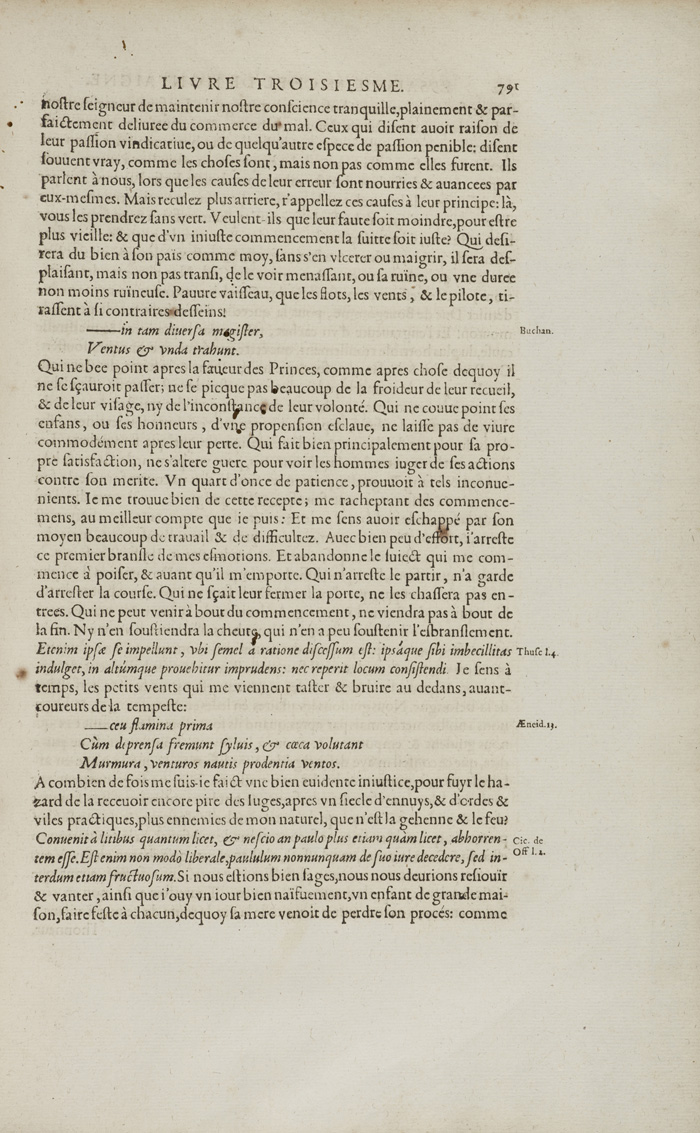 LIVRE TROISIESME. 791
nostre seigneur de maintenir nostre conscience tranquille, plainement & par-
faictement deliuree du commerce du mal. Ceux qui disent auoir raison de
leur passion vindicatiue, ou de quelqu'autre espece de passion penible: disent
souuent vray, comme les choses sont, mais non pas comme elles furent. Ils
parlent à nous, lors que les causes de leur erreur sont nourries & auancees par
eux-mesmes. Mais reculez plus arriere, r'appellez ces causes à leur principe: là,
vous les prendrez sans vert. Veulent-ils que leur faute soit moindre, pour estre
plus vieille: & que d'vn iniuste commencement la suitte soit iuste? Qui desi-
rera du bien à son païs comme moy, sans s'en vlcerer ou maigrir, il sera des-
plaisant, mais non pas transi, de le voir menassant, ou sa ruïne, ou vne duree
non moins ruïneuse. Pauure vaisseau, que les flots, les vents, & le pilote, ti-
rassent à si contraires desseins!
——in tam diuersa magister, Buchan.
Ventus & vnda trahunt.
Qui ne bee point apres la faueur des Princes, comme apres chose dequoy il
ne se sçauroit passer; ne se picque pas beaucoup de la froideur de leur recueil,
& de leur visage, ny de l'inconstance de leur volonté. Qui ne couue point ses
enfans, ou ses honneurs, d'vne propension esclaue, ne laisse pas de viure
commodément apres leur perte. Qui fait bien principalement pour sa pro-
pre satisfaction, ne s'altere guere pour voir les hommes iuger de ses actions
contre son merite. Vn quart d'once de patience, prouuoit à tels inconue-
nients. Ie me trouue bien de cette recepte; me racheptant des commence-
mens, au meilleur compte que ie puis: Et me sens auoir eschappé par son
moyen beaucoup de trauail & de difficultez. Auec bien peu d'effort, i'arreste
ce premier bransle de mes esmotions. Et abandonne le suiect qui me com-
mence à poiser, & auant qu'il m'emporte. Qui n'arreste le partir, n'a garde
d'arrester la course. Qui ne sçait leur fermer la porte, ne les chassera pas en-
trees. Qui ne peut venir à bout du commencement, ne viendra pas à bout de
la fin. Ny n'en soustiendra la cheute, qui n'en a peu soustenir l'esbranslement.
Etenim ipsæ se impellunt, vbi semel à ratione discessum est: ipsáque sibi imbecillitas Thusc l.4.
indulget, in altúmque prouehitur imprudens: nec reperit locum consistendi. Ie sens à
temps, les petits vents qui me viennent taster & bruire au dedans, auant-
coureurs de la tempeste:
——ceu flamina prima Æneid.13.
Cùm deprensa fremunt syluis, & cæca volutant
Murmura, venturos nautis prodentia ventos.
A combien de fois me suis-ie faict vne bien euidente iniustice, pour fuyr le ha-
zard de la receuoir encore pire des Iuges, apres vn siecle d'ennuys, & d'ordes &
viles practiques, plus ennemies de mon naturel, que n'est la gehenne & le feu?
Conuenit à litibus quantum licet, & nescio an paulo plus etiam quàm licet, abhorren- Cic. de
tem esse. Est enim non modò liberale, paululum nonnunquam de suo iure decedere, sed in- Off l.2.
terdum etiam fructuosum. Si nous estions bien sages, nous nous deurions resiouir
& vanter, ainsi que i'ouy vn iour bien naïfuement, vn enfant de grande mai-
son, faire feste à chacun, dequoy sa mere venoit de perdre son procés: comme